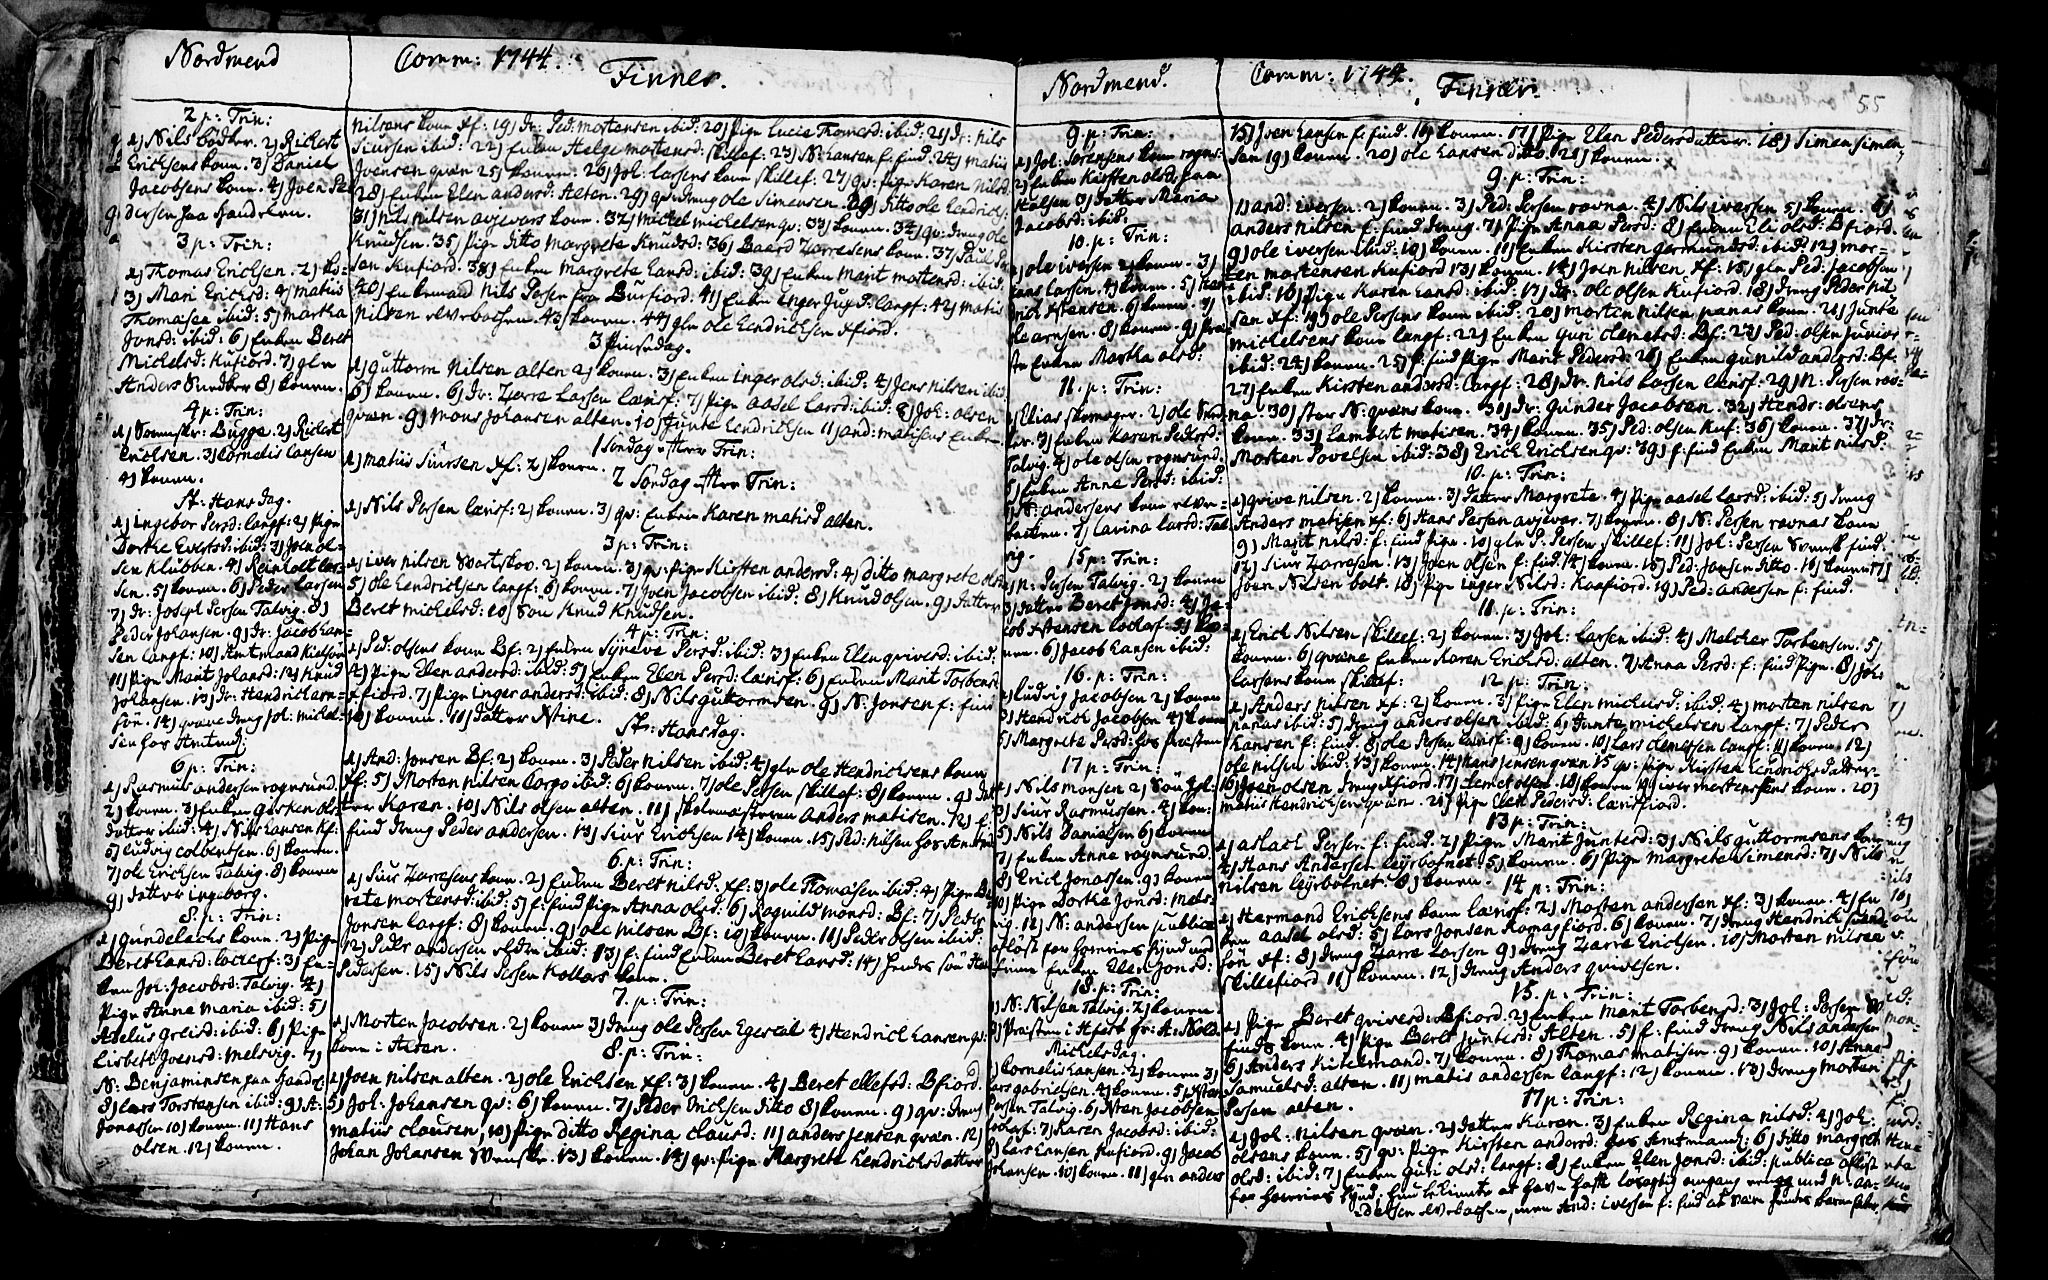 Nordmend
Comm: 1744.
Finner.
2 p: Trin:
1) Nils bødker. 2) Rickert
Erichsens konn. 3) Daniel
Jacobsens konn. 4) Joen Pe-
dersen paa handelen.
3 p: Trin:
1) Thomas Erichsen. 2) ko-
3) Mari Erichsd: 4) matis
Thomasen ibid: 5) martha
Jonsd: ibid: 6) Enken Beret
Michelsd: Kufiord. 7) gln
Anders Snedker 8) konnen.
4 p: Trin:
1) Sorenskr: Bugge. 2) Rickert
Erichsen. 3) Cornelis Hansen
4) konnen.
St: Hansdag.
1) Ingebor Persd: langf: 2) Pign
Dorthe Evertsd: ibid: 3) Joen ol-
sen Klubben. 4) Reinholt lar-
sen. 5) konnen. 6) Peder Larsen
7) dr: Joseph Persen Talvig. 8)
Peder Johansen. 9) dr: Jacob Han-
sen langf: 10) Amtmand Kielson
11) Pign Marit Johansd: 12) Knud
Johansen. 13) dr: Hendrich arn-
son. 14) qvæne dreng Joh: michel-
sen hos Amtmd:
6 p: Trin:
1) Rasmus andersen rognsund.
2) konnen. 3) Enken Giertken ols-
datter ibid: 4) Nils Hansen Kf:
5) Ludvig Colbertsen. 6) konnen.
7) ole Erichsen Talvig. 8) konnen
9) datter Ingeborg.
8. p: Trin:
1) Gundelachs konn. 2) Pign
Beret Hansd: loderf: 3) En-
ken Joh: Jacobsd: Talvig. 4)
Pign Anna maria ibid: 5)
Adelus Greisd: ibid: 6) Pign
Lisbeth Joensd: melsvig. 7)
N: Benjaminsen paa handel:
8) Lars Torstensen ibid: 9) A:
Jonassen 10) konnen. 11) Hans
olsen. 12) konnen.
Nilsens konn xf: 19) dr: Ped: mortensen ibid: 20) Pign Lucia Thomesd: ibid: 21) dr: Nils
Siursen ibid: 22) Enken Helge mortensd: skillef: 23) N: Hansen f: find. 24) matis
Joensen qvæn 25) konnen. 26) Joh: larsens konn skillef: 27) qv: pige Karen Nilsd:
28) Enken Elen andersd: Alten. 29) qv: dreng ole Simensen. 30) ditto ole Hendrich:
31) Nils Nilsen avjevars konn. 32) Michel michelsen qv: 33) konnen. 34) qv: dreng ole
Knudsen. 35) Pige ditto margrete Knudsd: 36) Baard Zarresens konn. 37) Paul Per-
sen Kufiord. 38) Enken margrete Hansd: ibid: 39) Enken Marit mortensd: ibid:
40) Enkemand Nils Persen fra Burfiord. 41) Enken Inger Juxd: langf: 42) matis
Nilsen elverbachen. 43) konnen. 44) gln ole Hendrichsen xfiord.
3 Pinsedag.
1) Guttorm Nilsen alten 2) konnen. 3) Enken Inger olsd: ibid: 4) Jens Nilsen ibid:
5) konnen. 6) dr: Zarre Larsen lærisf: 7) Pign aasel larsd: ibid: 8) Joh: olsen
qvæn. 9) Mons Johansen alten. 10) Junte Hendrichsen 11) and: matisens Enken
1 Søndag efter Trin:
1) Matis Siursen xf: 2) konnen.
2 Søndag efter Trin:
1) Nils Persen lærisf: 2) konnen. 3) qv: Enken Karen matisd alten.
3 p: Trin:
1) Iver Nilsen Svartskov. 2) konnen. 3) qv: pign Kirsten andersd: 4) ditto margrete olsd:
5) ole Hendrichsen langf: 6) konnen. 7) Joen Jacobsen ibid: 8) Knud olsen. 9) datter
Beret michelsd: 10) Søn Knud Knudsen.
4 p: Trin:
1) Ped: olsens konn Bf: 2) Enken Syneve Persd: ibid: 3) Enken Elen qviversd: ibid:
4) Pign Elen andersd: ibid: 5) Enken Elen Persd: lærisf: 6) Enken Marit Torbensd:
xfiord. 7) Pign Inger andersd: ibid: 8) Nils guttormsen. 9) N: Jonsen f: find
10) konnen. 11) datter Stine.
St: Hansdag.
1) And: Jonsen Bf: 2) konnen. 3) Peder Nilsen ibid: 4) gln ole Hendrichsens konn
xf: 5) Morten Nilsen Corgo ibid: 6) konnen. 7) ole Persen skillef: 8) konnen. 9) dat-
ter Karen. 10) Nils olsen alten. 11) skolemesteren anders matisen. 12) f:
find dreng Peder andersen. 13) Siur Erichsen 14) konnen. 15) Ped: Nilsen hos Amtmd
6 p: Trin:
1) Siur Zarresens konn. 2) Enken Beret Nilsd: xf: 3) ole Thomasen ibid: 4) Pign Be-
rete mortensd: ibid: 5) f: find pign Anna olsd: 6) Raquild monsd: Bf: 7) Peder
Jonsen langf: 8) konnen. 9) ole Nilsen Bf: 10) konnen. 11) Peder olsen ibid:
12) Peder andersen eldre ibid: 13) f: find Enken Beret Hansd: 14) hendes søn Han
Pedersen. 15) Nils Persen Kollars konn.
7. p: Trin:
1) Morten Jacobsen. 2) konnen 3) dreng ole Persen Egeseal 4) Hendrich Hansens qv:
konn i Alten.
8. p: Trin:
1) Joen Nilsen alten. 2) ole Erichsen xf: 3) konnen. 4) Beret ellefsd: Bfiord.
5) Joh: Johansen qv: 6) konnen. 7) Peder Erichsen ditto 8) konnen. 9) qv: dreng
Matis Clausen, 10) Pign ditto Regina Clausd: 11) anders Jensen qvæn. 12)
Johan Johansen Svensker. 13) konnen. 14) qv: Pign Margrete Hendrichsdatter
Nordmend.
Comm: 1744.
Finner.
55
9. p: Trin:
1) Joh: Sørensens konn rogns:
2) Enken Kirsten olsd: paa
Halsen 3) datter Maria
Jacobsd: ibid:
10. p: Trin:
1) ole iversen 2) konnen. 3)
Hans Larsen. 4) konnen. 5) Hen-
drich xstensen. 6) konnen. 7)
... 8) konnen. 9) ...
ste Enken Martha olsd:
11. p: Trin:
1) Elias skomager. 2) ole Sned-
ker. 3) Enken Karen Pedersd:
Talvig. 4) ole olsen rognsund:
5) Enken Anne Persd: ibid:
6) N: andersens konn elver-
backen. 7) Lavina larsd: Tal-
vig.
15 p: Trin:
1) N: Persen Talvig. 2) konnen
3) datter Beret Jonsd: 4) Ja-
cob xstensen loderf: 5) ko-
nnen. 6) Jacob Hansen ibid:
16. p: Trin:
1) Ludvig Jacobsen 2) konnen
3) Hendrich Jacobsen 4) konnen
5) Margrete Persd: hos Præsten
17 p: Trin:
1) Nils monsen 2) Søn Joh:
3) Siur Rasmussen. 4) konn:
5) Nils Danielsen 6) konnen
7) Enken Anne rognsund.
8) Erich Jonassen. 9) konnen
10) Pign Dorthe Jonsd: mels-
vig. 12) N: andersen publice
afløst for horeries synd med
finne Enken Elen Jonsd:
18. p: Trin:
1) N: Nilsen Talvig. 2) konnen.
3) Præsten i Hfest hr: A: Nold.
Michelsdag.
1) Cornelis Hansen. 2) konnen 3)
Lars gabrielsen. 4) konnen. 5) xsten
Persen Talvig. 6) xsten Jacobsen
loderf: 7) Karen Jacobsd: ibid:
8) Lars Hansen Kufiord. 9) Jacob
Johansen. 10) konnen. 11) gln anders
15) Joen Hansen f: find. 16) konnen. 17) Pign Elen Pedersdatter. 18) Simen simen-
sen 19) konnen. 20) ole Hansen ditto. 21) konnen.
9. p: Trin:
1) and: iversen. 2) konnen. 3) Ped: Persen ravna. 4) Nils iversen 5) konnen. 6)
anders Nilsen f: find dreng. 7) Pign Anna Persd: 8) Enken Eli olsd: Bfiord.
9) ole iversen ibid: 10) konnen. 11) Enken Kirsten gormundsd: ibid: 12) mor-
ten mortensen Kufiord 13) konnen. 14) Joen Nilsen xf: 15) gln Ped: Jacobsen
ibid: 16) Pign Karen Hansd: ibid: 17) dr: ole olsen Kufiord. 18) dreng Peder Nil-
sen xf: 19) ole Persens konn ibid: 20) morten Nilsen panas konn. 21) Junte
michelsens konn langf: 22) Enken Guri olemetsd: Bf: 23) Ped: olsen Junior
ibid: 24) konnen. 25) f: find Pign Marit Pedersd: 26) Enken gunild andersd: Bf:
27) Enken Kirsten andersd: langf: 28) dr: Nils Larsen lærisf: 29) N: Persen rav-
na. 30) stor N: qvæns konn. 31) dr: Gunder Jacobsen. 32) Hendr: olsens
konn. 33) Lambert matisen. 34) konnen. 35) Ped: olsen Kuf: 36) konnen. 37) dr:
Morten Povelsen ibid: 38) Erich Erichsen qv: 39) f: find Enken Marit Nilsd.
10. p: Trin:
1) qvive Nilsen. 2) konnen. 3) datter Margrete. 4) Pign aasel larsd: ibid: 5) dreng
Anders matisen xf: 6) Hans Persen avjevar. 7) konnen. 8) N: Persen ravnas konn
9) Marit Nilsd: f: find pign. 10) gln P: Persen skillef: 11) Joh: Persen Svensk find.
12) Siur Zarresen. 13) Joen olsen f: find. 14) konnen. 15) Ped: Jonsen ditto. 16) konnen 17)
Joen Nilsen bolt. 18) Pign Inger Nilsd: Kaafiord. 19) Ped: andersen f: find.
11. p: Trin:
1) Erich Nilsen skillef: 2) konnen. 3) Joh: larsen ibid: 4) Melcher Torbensen. 5)
konnen. 6) qvæne Enken Karen Erichsd: alten. 7) Anna Persd: f: find Pign. 8) Joh:
larsens konn skillef:
12 p: Trin:
1) Anders Nilsen xf: 2) konnen. 3) Pign Elen michelsd: ibid: 4) morten Nilsen
panas ibid: 5) dreng anders olsen ibid: 6) Junte michelsen langf: 7) Peder
Hansen f: find. 8) ole Persen lærisf: 9) konnen. 10) Lars Clemetsen langf: 11) konnen. 12)
ole Nilsen ibid: 13) konnen. 14) Hans Jensen qvæn 15) qv: pign Kirsten Hendrichsdatter.
16) Joen olsen dreng xfiord. 17) Lemet olsen. 18) konnen 19) iver mortensens konn. 20)
matis Hendrichsen qvæn. 21) Pign Elen Pedersd: lærisfiord.
13 p: Trin:
1) aslach Persen f: find. 2) Pign Marit Juntesd: 3) Nils guttormsens konn
4) Hans Andersen leyrbotnet. 5) konnen. 6) Pign margrete Simensd: 7) Nils
Nilsen leyrbotnet. 8) konnen.
14 p: Trin:
1) Harmand Erichsens konn lærisf: 2) Morten andersen xf: 3) konnen. 4) En-
ken aasel olsd: 5) Lars Jonsen Komagfiord. 6) konnen. 7) dreng Hendrich svend-
sen xf: 8) dreng Zarre Larsen 9) dreng Zarre Erichsen. 10) Morten Nilsen
skillefiord 11) konnen. 12) dreng Anders qvivesen.
15. p: Trin:
1) Pign Beret qviversd: Bfiord. 2) Enken Marit Torbensd: 3) Joh: Persen
finds konn. 4) Pign Beret Juntesd: Alten. 5) f: find dreng Nils andersen
6) Anders Kitelmand. 7) konnen. 8) Thomas matisen. 9) konnen. 10) Anna
Samuelsd: alten. 11) matis andersen langf: 12) konnen. 13) dreng morten
Persen alten.
17 p: Trin:
1) Joh: Nilsen qvæn. 2) datter Karen. 3) Enken Regina Nilsd: 4) Joh:
olsens konn. 5) qv: Pign Kirsten andersd: hos Amtmand: 6) ditto margret
olsd: ibid: 7) Enken Guri olsd: langf: 8) Enken Elen Jonsd: ibid: publice afløst
for horeries synd: hun bekiente at have haft løsagtig omgang med N: an-
dersen elverbachen, men And: iversen f: find at være hendes barnefader.